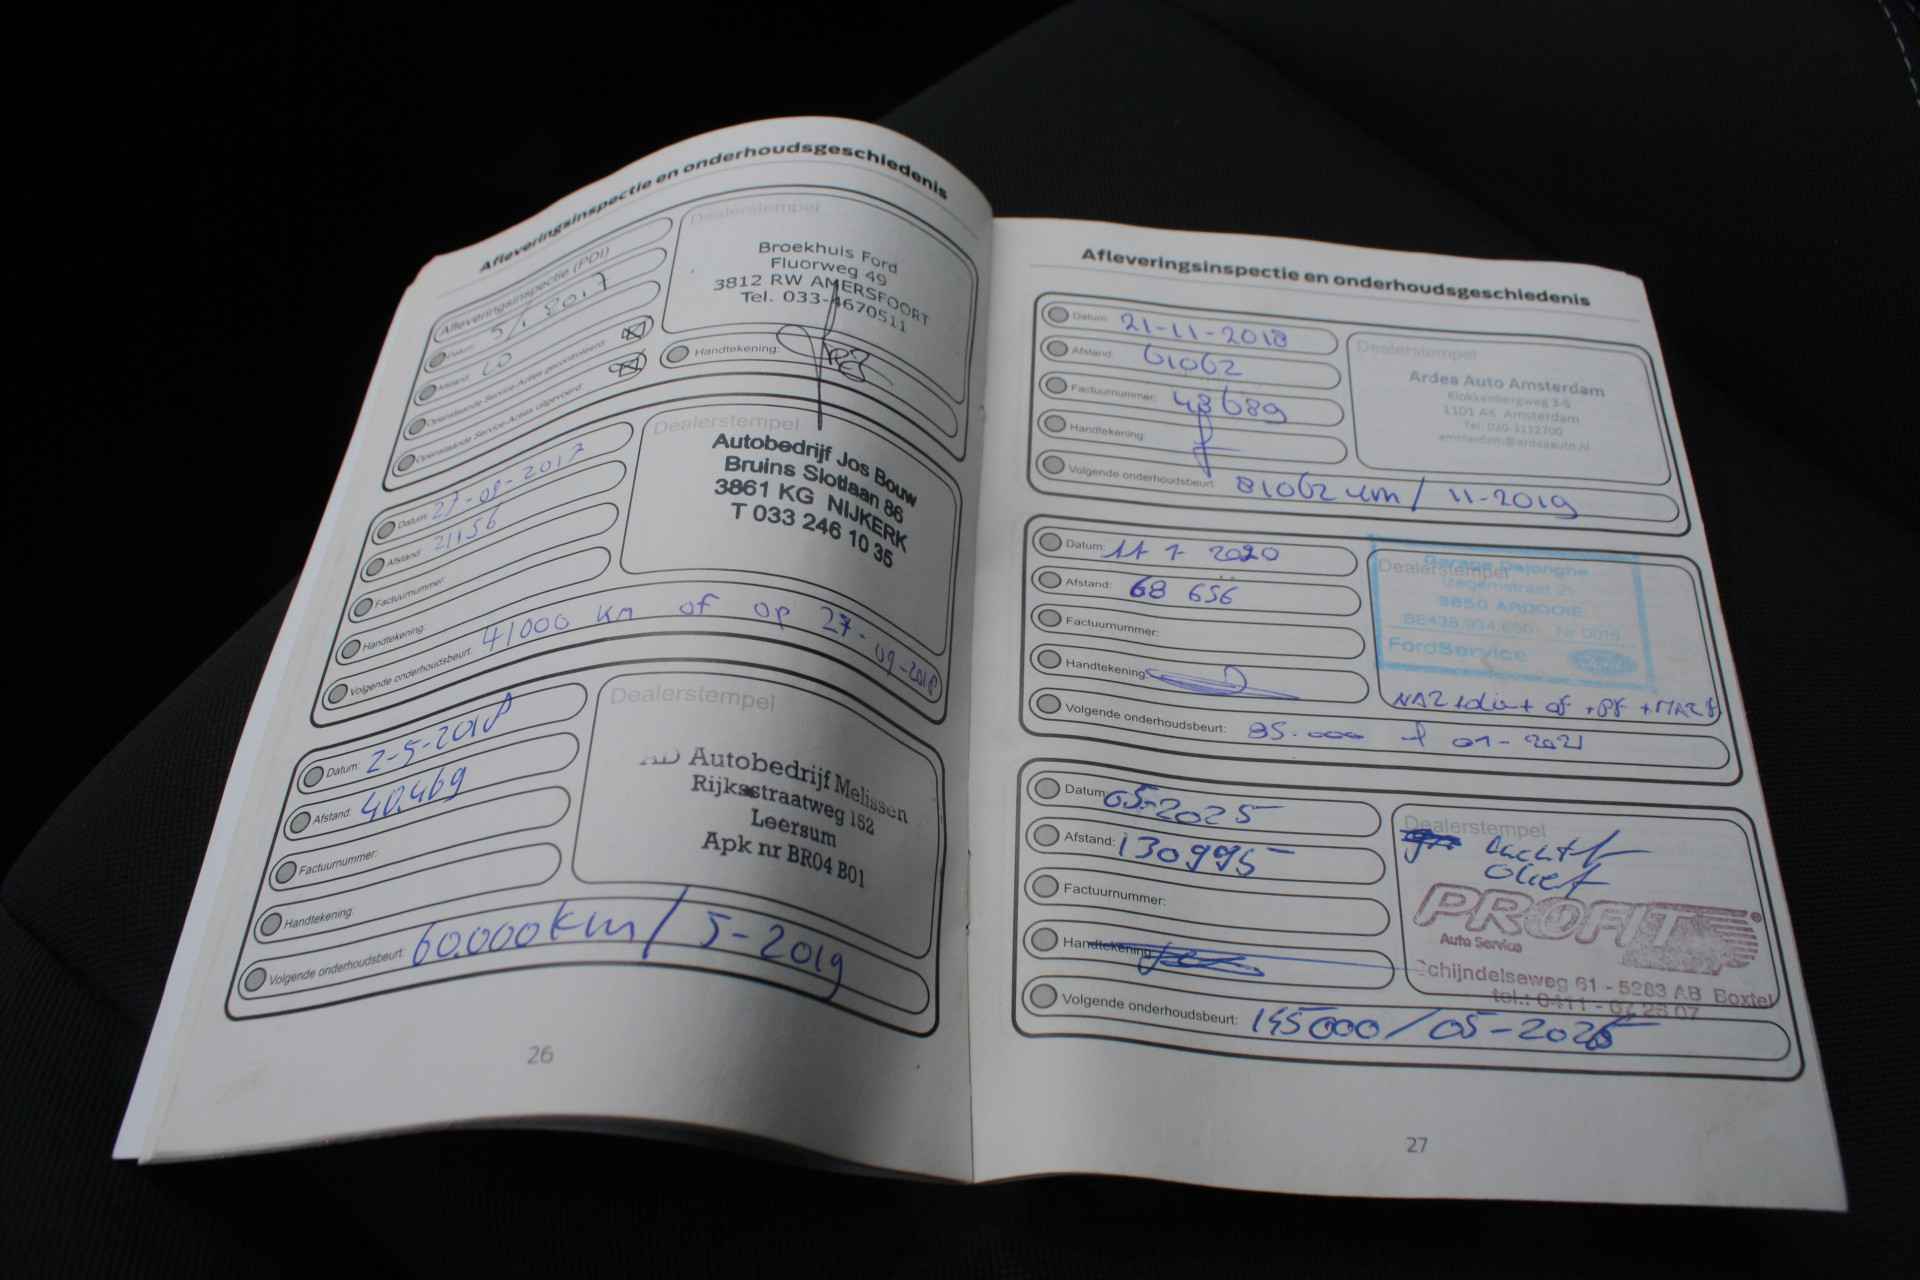 Afleveringsinspectie en onderhoudsgeschiedenis
Afleveringsinspectie (PDI)
Datum: 2017
Afstand: 10
Openstaande Service-Acties gecontroleerd:
Openstaande Service-Acties uitgevoerd:
Dealerstempel
Broekhuis Ford
Fluorweg 49
3812 RW AMERSFOORT
Tel. 033-4670511
Handtekening:
Datum: 27-09-2017
Afstand: 21156
Factuurnummer:
Handtekening:
Volgende onderhoudsbeurt: 41000 km of op 27-09-2018
Dealerstempel
Autobedrijf Jos Bouw
Bruins Slotlaan 86
3861 KG NIJKERK
T 033 246 10 35
Datum: 2-5-2018
Afstand: 40.469
Factuurnummer:
Handtekening:
Volgende onderhoudsbeurt: 60.000km / 5-2019
Dealerstempel
AD Autobedrijf Melissen
Rijksstraatweg 152
Leersum
Apk nr BR04 B01
26
Afleveringsinspectie en onderhoudsgeschiedenis
Datum: 21-11-2018
Afstand: 61062
Factuurnummer: 48689
Handtekening:
Volgende onderhoudsbeurt: 81062 km / 11-2019
Dealerstempel
Ardea Auto Amsterdam
Klokkenbergweg 3-5
1101 AK Amsterdam
Tel. 020-3132700
amsterdam@ardeaauto.nl
Datum: 17 1 2020
Afstand: 68 656
Factuurnummer:
Handtekening:
Volgende onderhoudsbeurt: 85.000 01-2021
Dealerstempel
Garage Dejonghe
8850 ARDOOIE
FordService
Ford
Datum: 05-2025
Afstand: 130995
Factuurnummer:
Handtekening:
Volgende onderhoudsbeurt: 145000 / 05-2026
Dealerstempel
Lucht f
Olie f
PROFIT
Auto Service
Schijndelseweg 61 - 5283 AB Boxtel
tel.: 0411 - 67 28 07
27